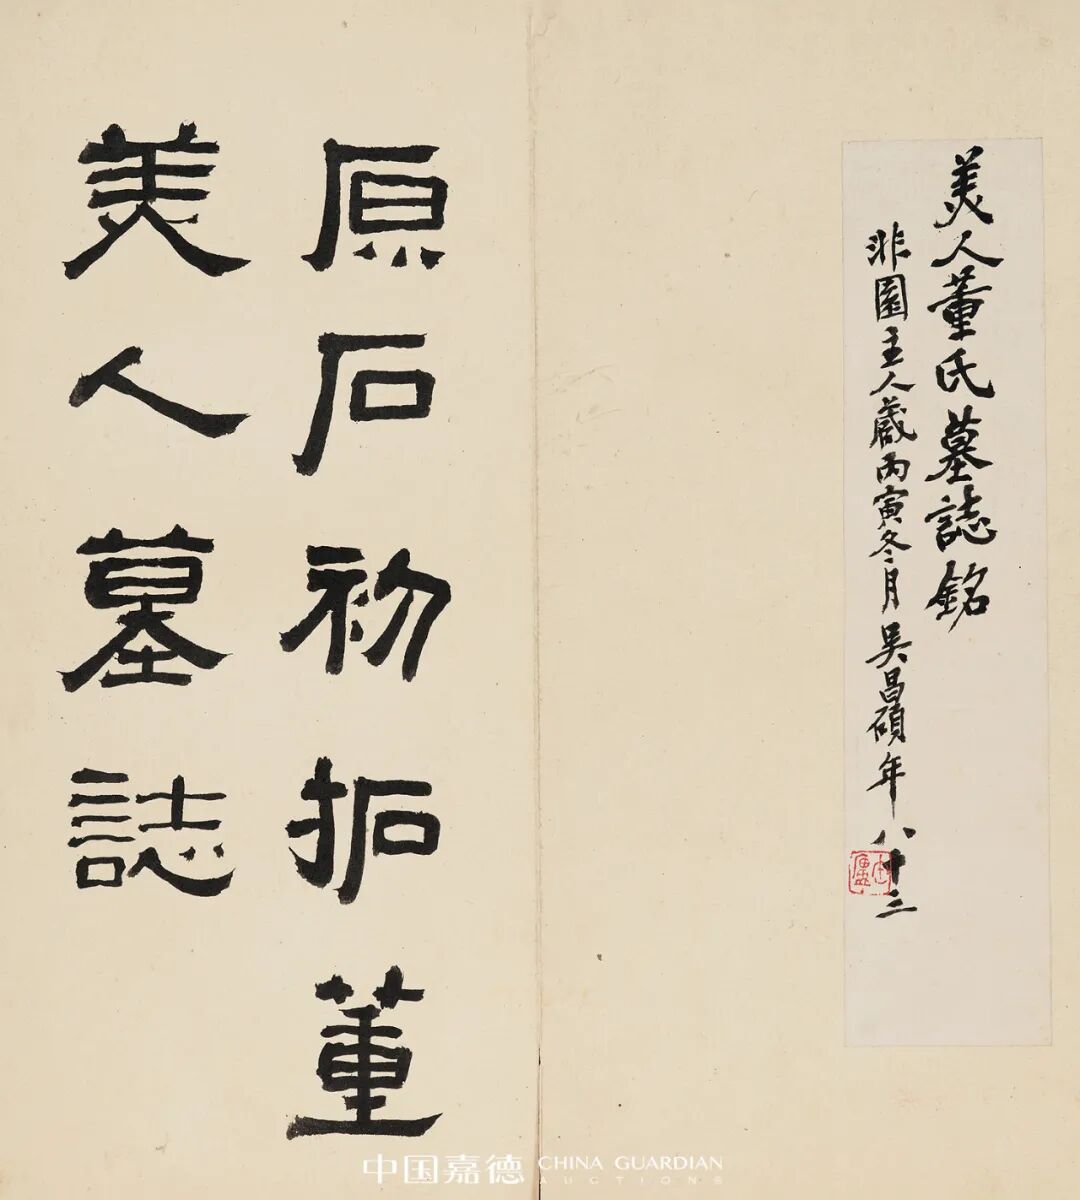 美人董氏墓誌銘
非園主人藏丙寅冬月吳昌碩年八十三
缶廬
原石初拓董
美人墓誌
中国嘉德 CHINA GUARDIAN
AUCTIONS